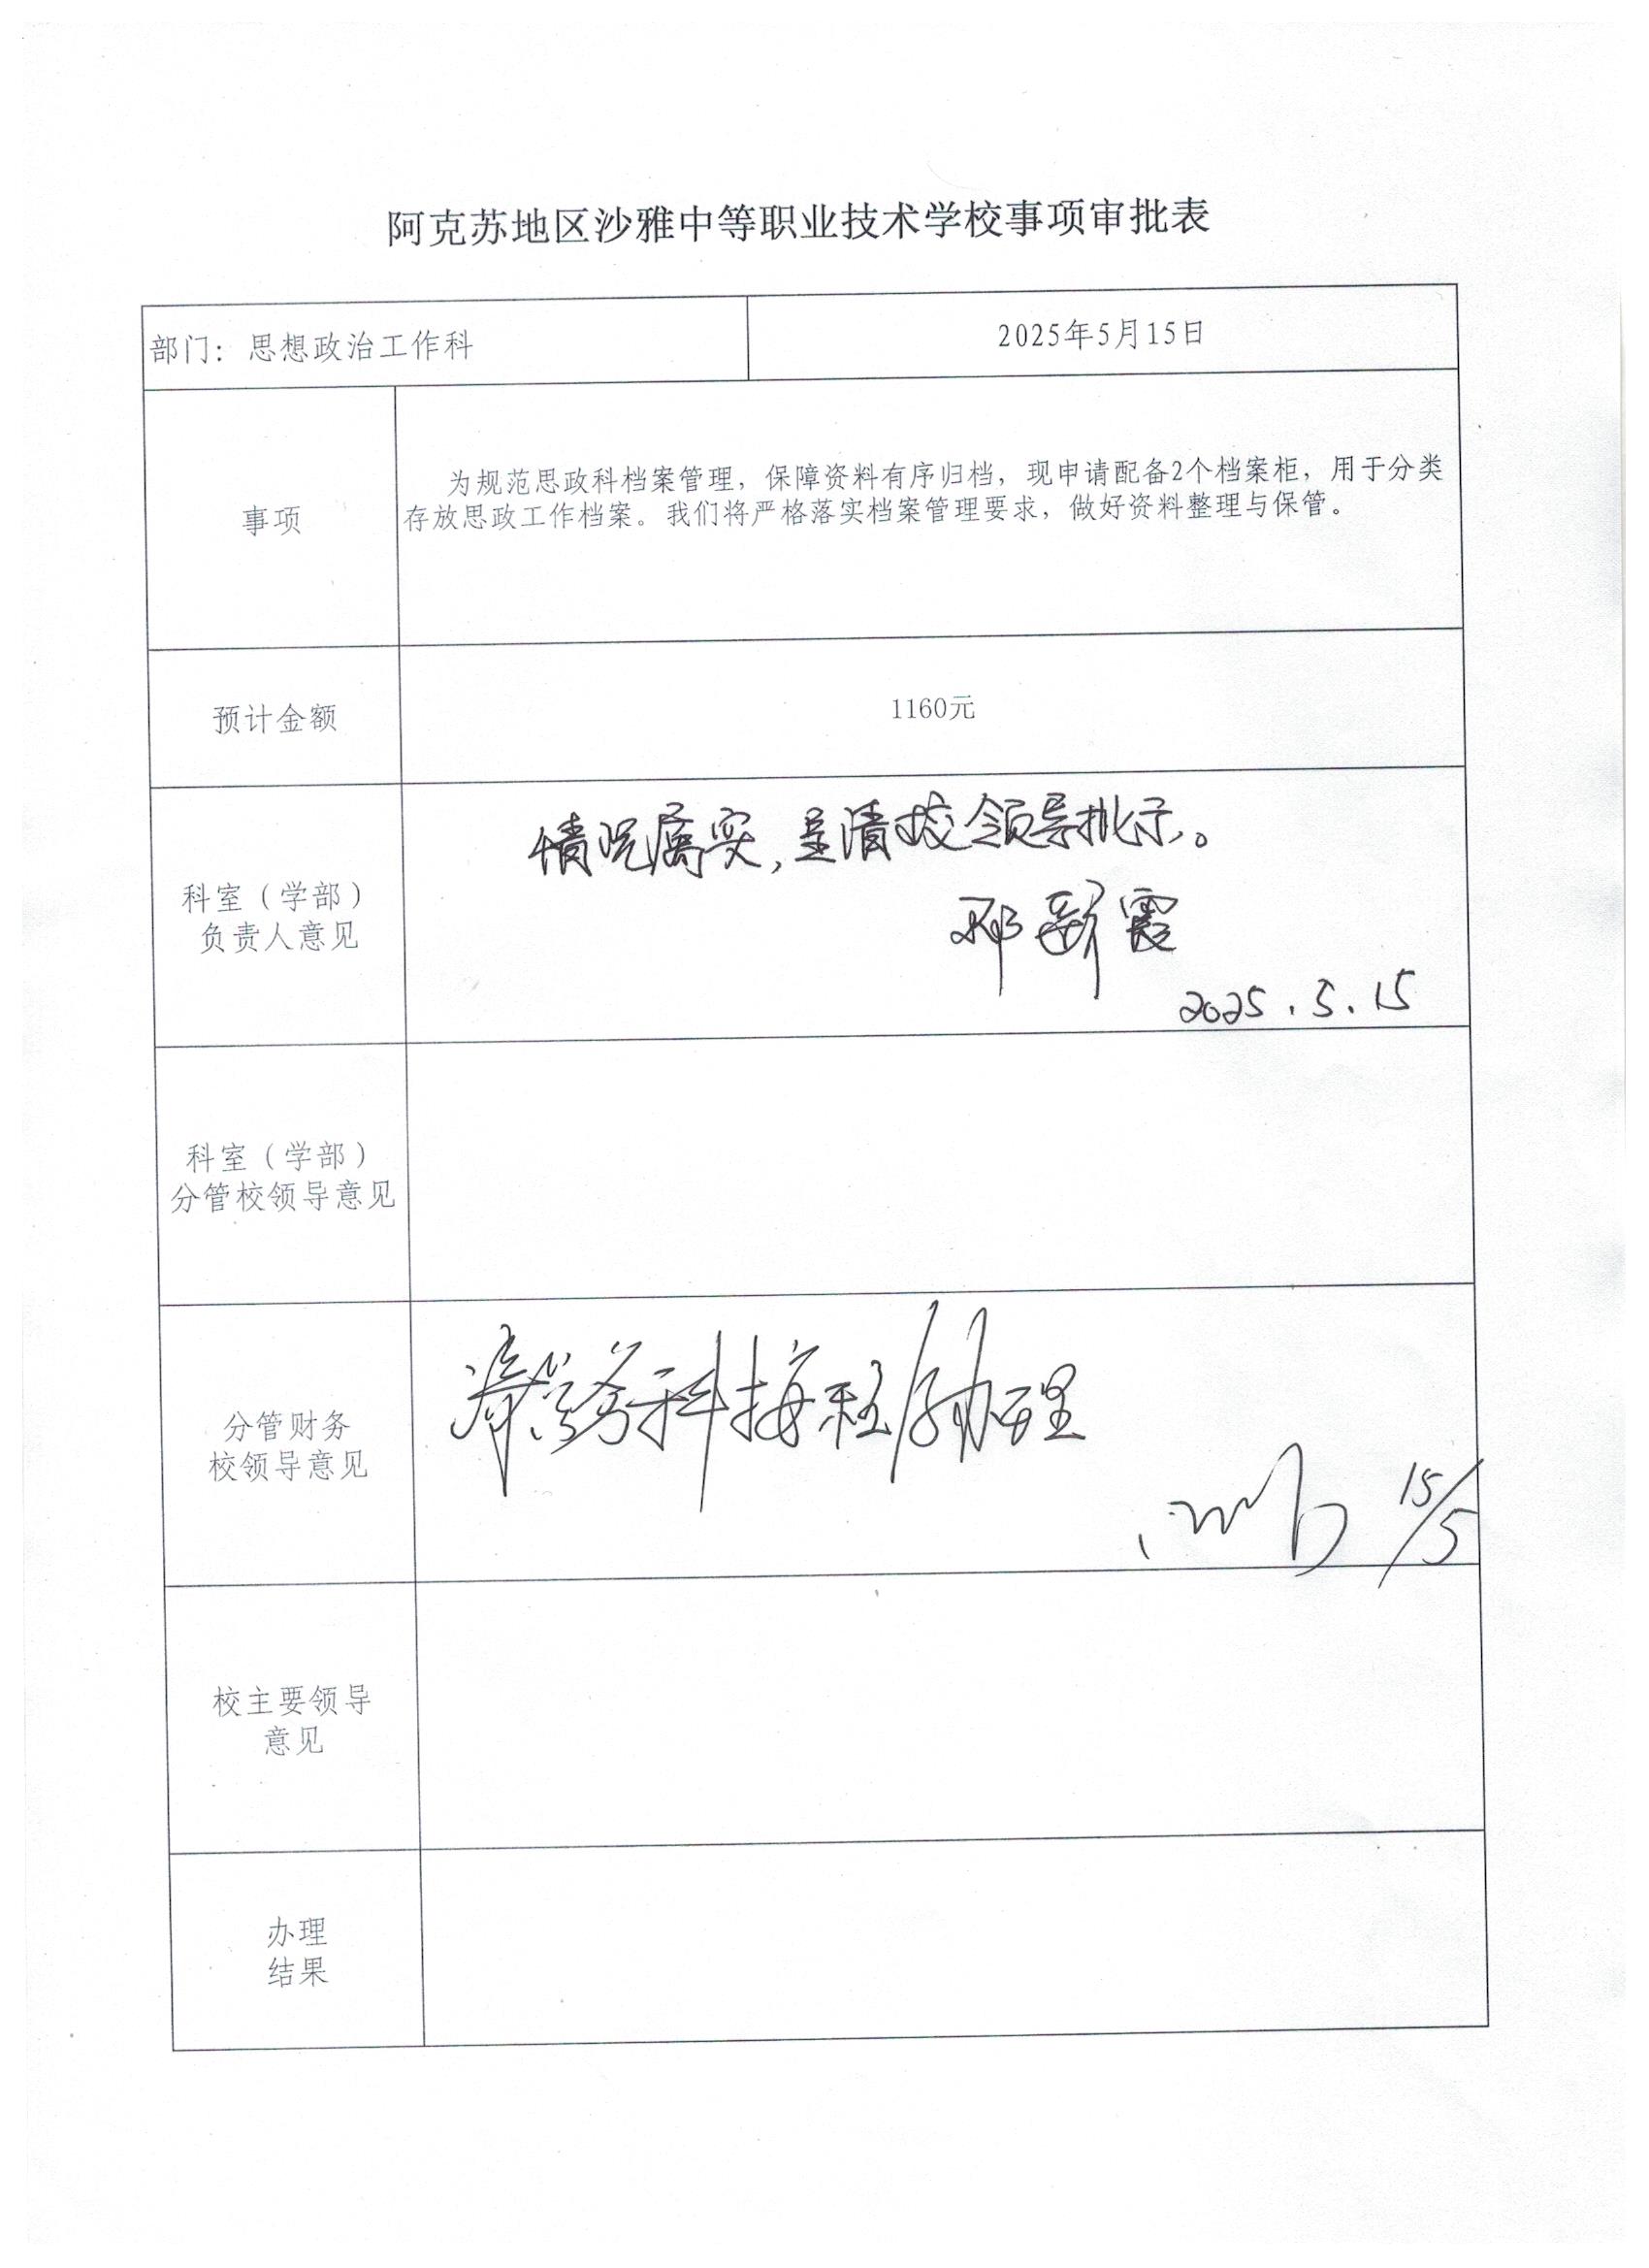 阿克苏地区沙雅中等职业技术学校事项审批表
部门：思想政治工作科
2025年5月15日
事项
为规范思政科档案管理，保障资料有序归档，现申请配备2个档案柜，用于分类
存放思政工作档案。我们将严格落实档案管理要求，做好资料整理与保管。
预计金额
1160元
科室（学部）
负责人意见
情况属实，呈请校领导批示。
邓新霞
2025.5.15
科室（学部）
分管校领导意见
分管财务
校领导意见
请总务科按程序办理
15/5
校主要领导
意见
办理
结果